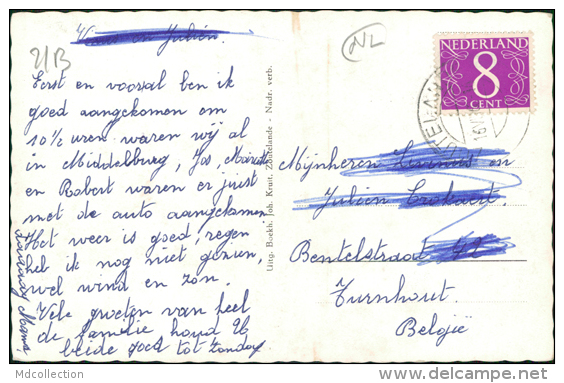 en Julien.
21/B
Eerst en vooral ben ik
goed aangekomen om
10½ uren waren wij al
in Middelburg, Jos,
en Robert waren er juist
met de auto aangekomen
Het weer is goed, regen
heb ik nog niet gezien,
wel wind en zon.
Vele groeten van heel
de familie houd U
beide goed tot Zondag
Mama
Uitg. Boekh. Joh. Kruit, Zoutelande - Nadr. verb.
NL
NEDERLAND
8
CENT
Mijnheren en
Julien
Bentelstraat
Turnhout.
België
Mdcollection
delcampe.net